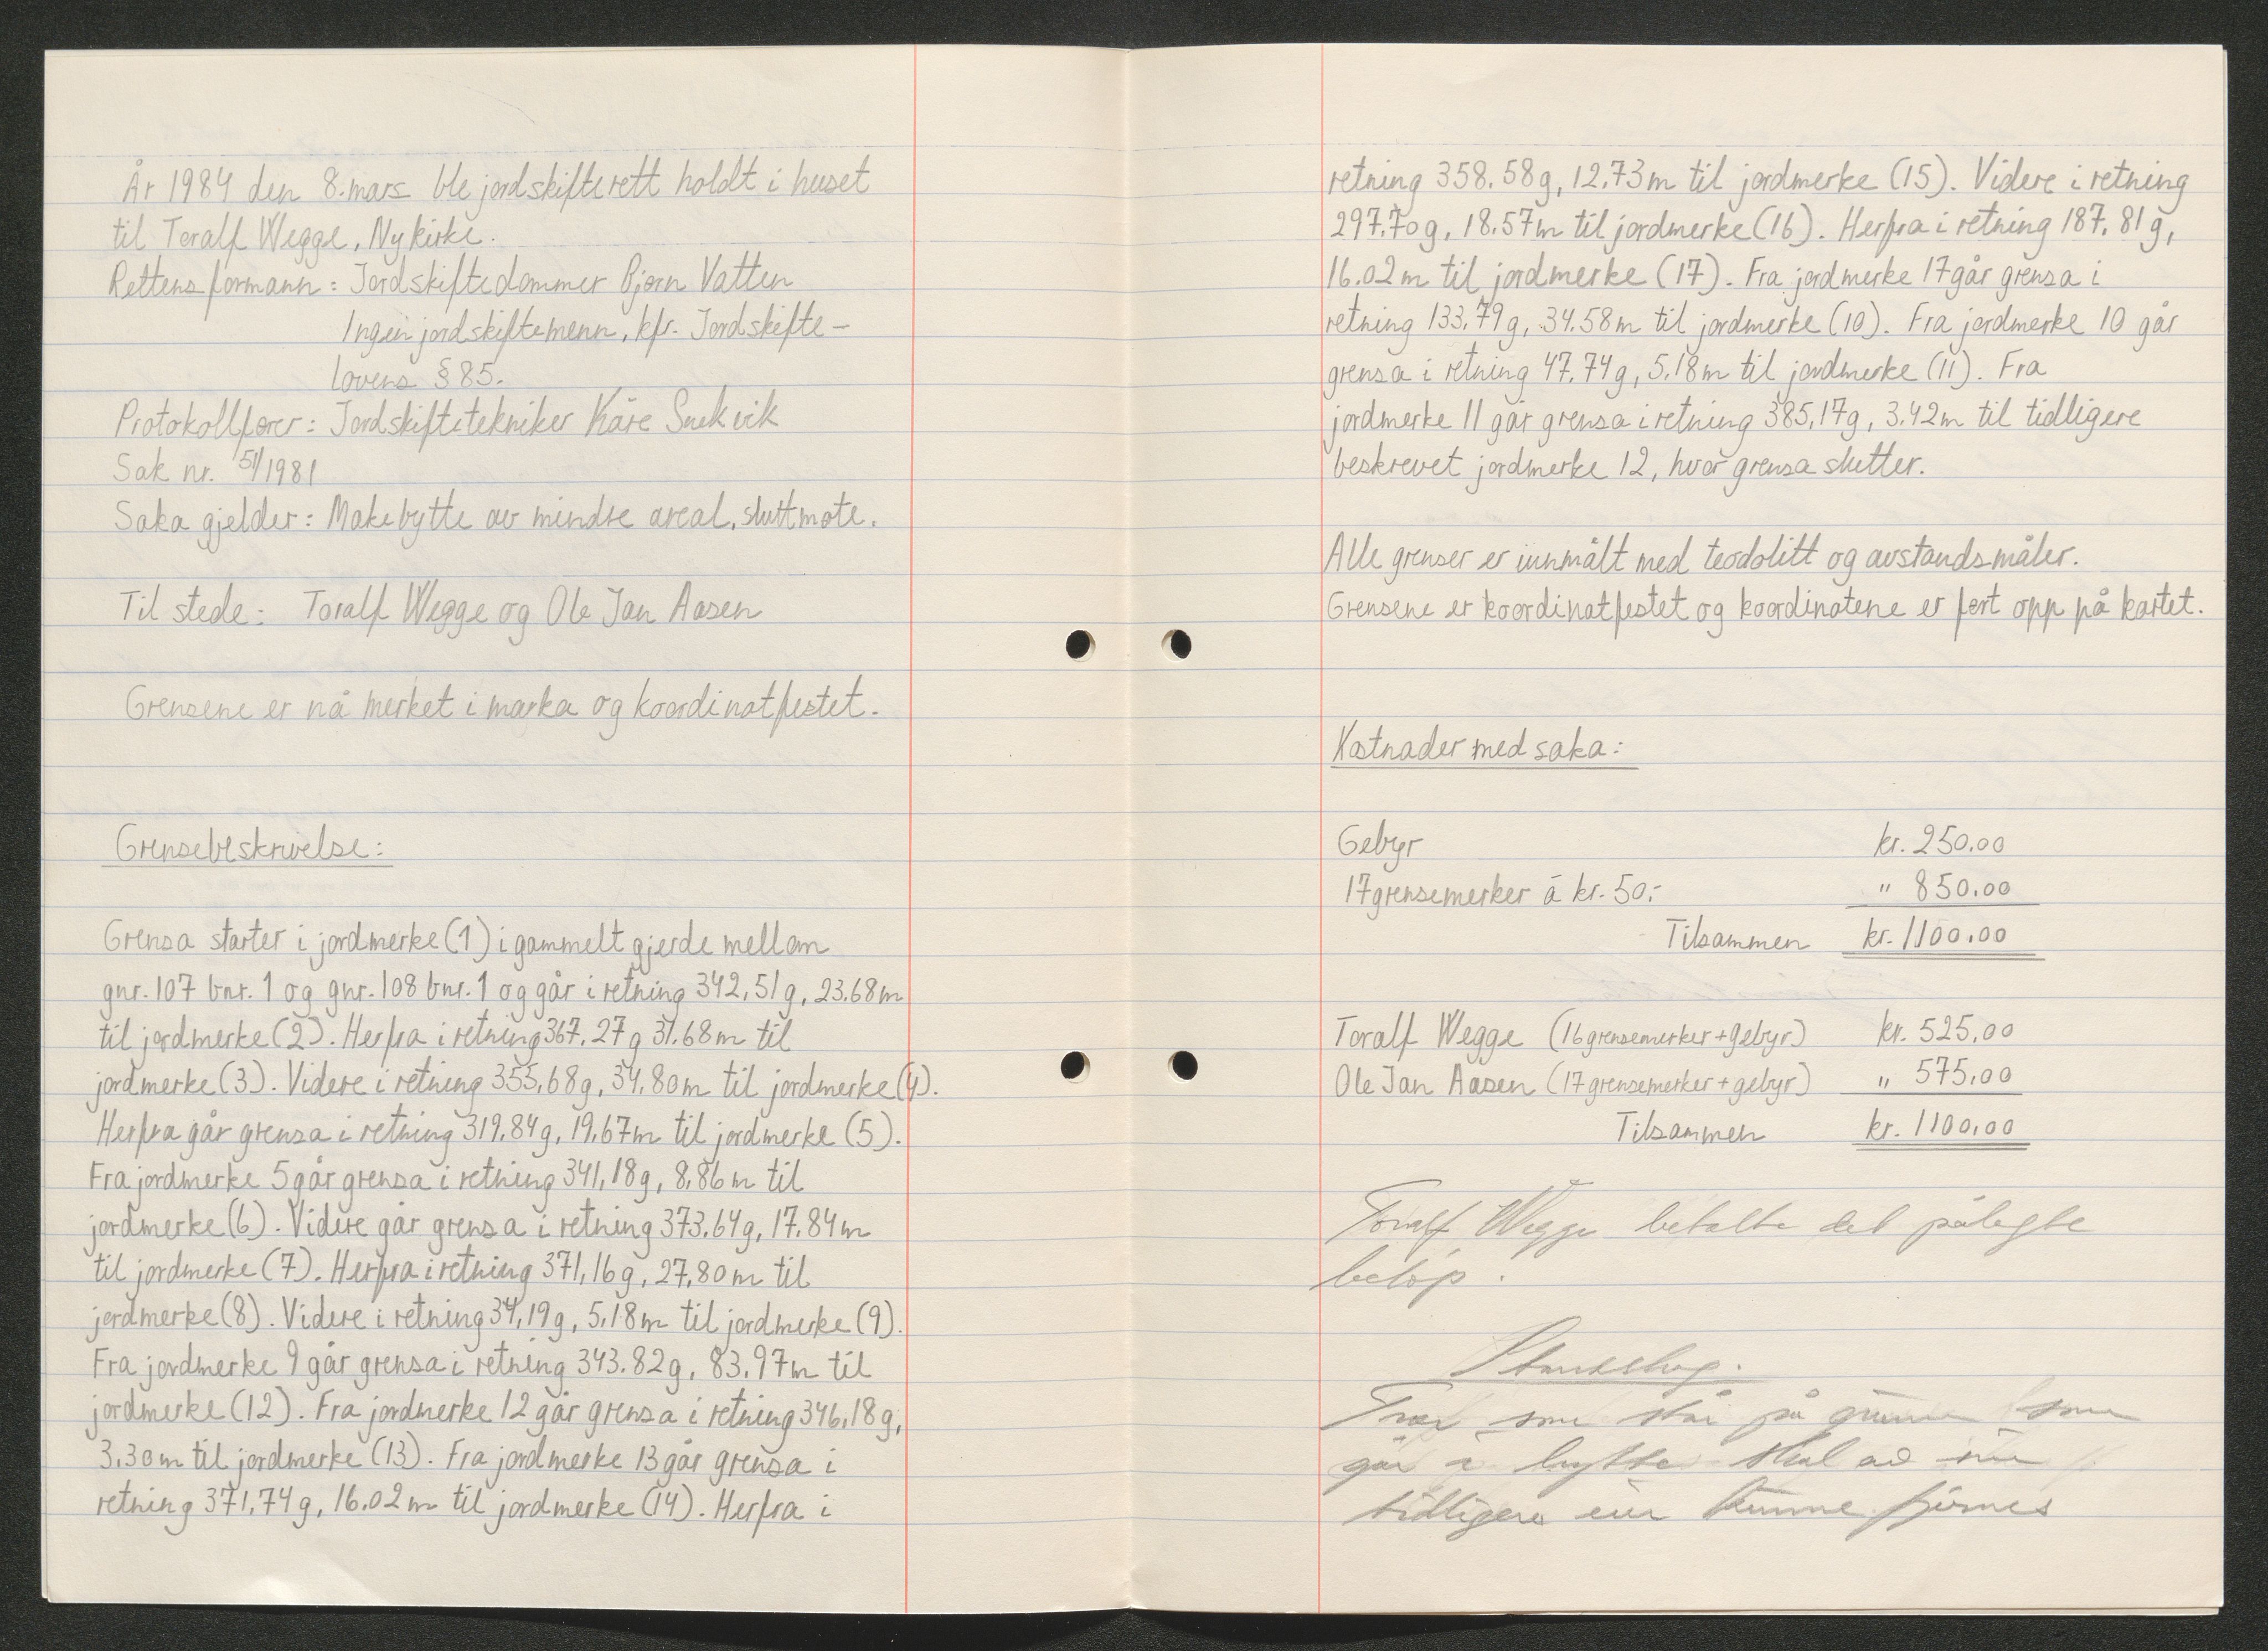 År 1984 den 8. mars ble jordskifterett holdt i huset
til Toralf Wegge, Nykirke.
Rettens formann: Jordskiftedommer Bjørn Vatten
Ingen jordskiftemenn, kfr. Jordskifte-
lovens § 85.
Protokollfører: Jordskiftetekniker Kåre Snekvik
Sak nr. 51/1981
Saka gjelder: Makebytte av mindre areal, sluttmøte.
Til stede: Toralf Wegge og Ole Jan Aasen
Grensene er nå merket i marka og koordinatfestet.
Grensebeskrivelse:
Grensa starter i jordmerke (1) i gammelt gjerde mellom
gnr. 107 bnr. 1 og gnr. 108 bnr. 1 og går i retning 342,51g, 23.68m
til jordmerke (2). Herfra i retning 367,27g 31.68m til
jordmerke (3). Videre i retning 355,68g, 34,80m til jordmerke (4).
Herfra går grensa i retning 319,84g, 19,67m til jordmerke (5).
Fra jordmerke 5 går grensa i retning 341,18g, 8,86m til
jordmerke (6). Videre går grensa i retning 373,64g, 17.84m
til jordmerke (7). Herfra i retning 371,16g, 27,80m til
jordmerke (8). Videre i retning 34,19g, 5,18m til jordmerke (9).
Fra jordmerke 9 går grensa i retning 343.82g, 83,97m til
jordmerke (12). Fra jordmerke 12 går grensa i retning 346,18g,
3,30m til jordmerke (13). Fra jordmerke 13 går grensa i
retning 371,74g, 16.02m til jordmerke (14). Herfra i
retning 358.58g, 12,73m til jordmerke (15). Videre i retning
297,70g, 18.57m til jordmerke (16). Herfra i retning 187,81g,
16.02m til jordmerke (17). Fra jordmerke 17 går grensa i
retning 133,79g, 34.58m til jordmerke (10). Fra jordmerke 10 går
grensa i retning 47,74g, 5,18m til jordmerke (11). Fra
jordmerke 11 går grensa i retning 385,17g, 3.42m til tidligere
beskrevet jordmerke 12, hvor grensa slutter.
Alle grenser er innmålt med teodolitt og avstandsmåler.
Grensene er koordinatfestet og koordinatene er ført opp på kartet.
Kostnader med saka:
Gebyr kr. 250.00
17 grensemerker á kr. 50,- " 850.00
Tilsammen kr. 1100.00
Toralf Wegge (16 grensemerker + gebyr) kr. 525,00
Ole Jan Aasen (17 grensemerker + gebyr) " 575,00
Tilsammen kr. 1100,00
Toralf Wegge betalte det pålegte
beløp.
som står på som
går i bytte skal av sin
tidligere eier kunne fjernes